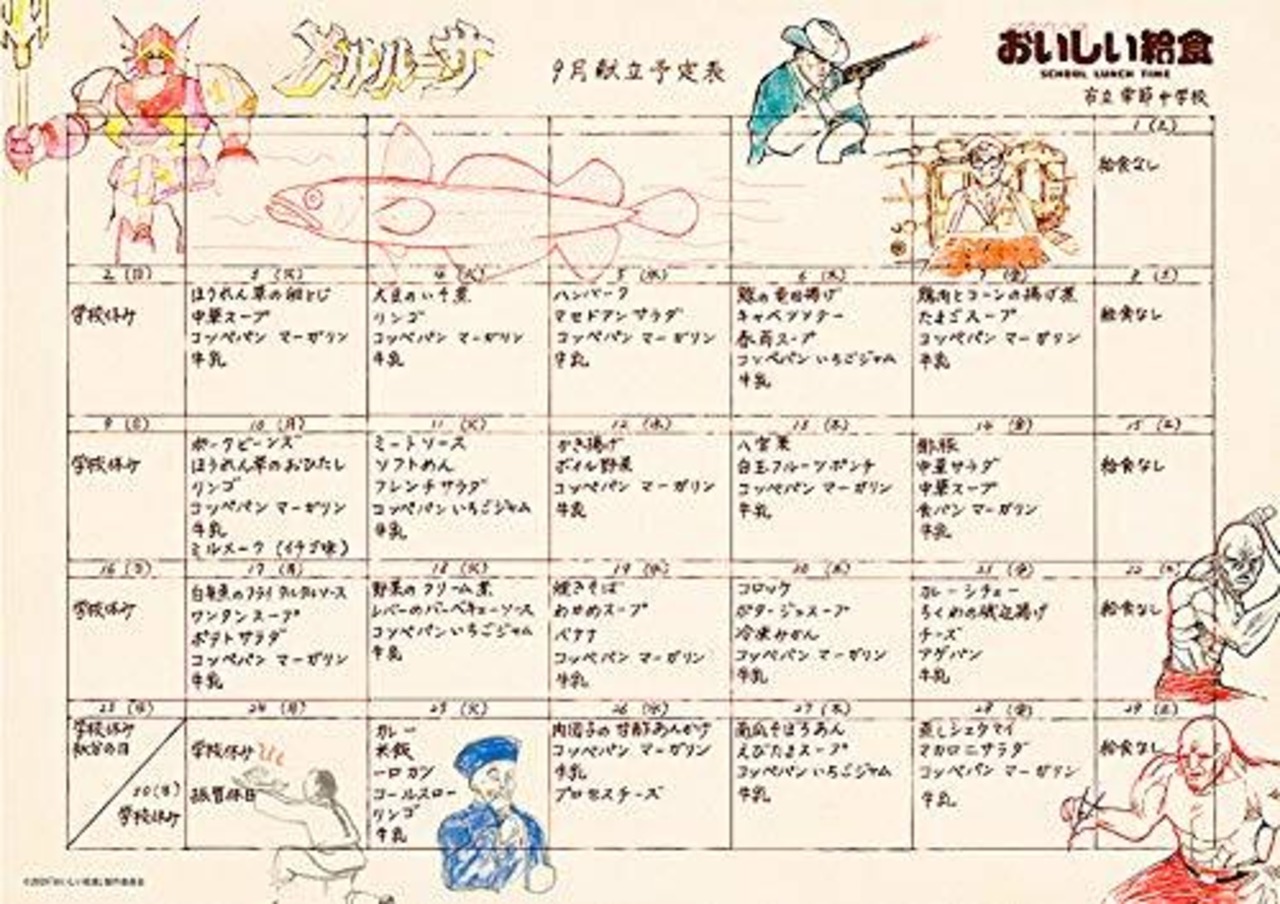 メルルーサ
9月献立予定表
おいしい給食
SCHOOL LUNCH TIME
市立常節中学校
1 (土)
給食なし
2 (日)
学校休み
3 (月)
ほうれん草の卵とじ
中華スープ
コッペパン マーガリン
牛乳
4 (火)
大豆のいそ煮
リンゴ
コッペパン マーガリン
牛乳
5 (水)
ハンバーグ
マセドアンサラダ
コッペパン マーガリン
牛乳
6 (木)
鯨の竜田揚げ
キャベツソテー
春雨スープ
コッペパン いちごジャム
牛乳
7 (金)
鶏肉とコーンの揚げ煮
たまごスープ
コッペパン マーガリン
牛乳
8 (土)
給食なし
9 (日)
学校休み
10 (月)
ポークビーンズ
ほうれん草のおひたし
リンゴ
コッペパン マーガリン
牛乳
ミルメーク (イチゴ味)
11 (火)
ミートソース
ソフトめん
フレンチサラダ
コッペパン いちごジャム
牛乳
12 (水)
かき揚げ
ボイル野菜
コッペパン マーガリン
牛乳
13 (木)
八宝菜
白玉フルーツポンチ
コッペパン マーガリン
牛乳
14 (金)
酢豚
中華サラダ
中華スープ
食パン マーガリン
牛乳
15 (土)
給食なし
16 (日)
学校休み
17 (月)
白身魚のフライ タルタルソース
ワンタンスープ
ポテトサラダ
コッペパン マーガリン
牛乳
18 (火)
野菜のクリーム煮
レバーのバーベキューソース
コッペパン いちごジャム
牛乳
19 (水)
焼きそば
わかめスープ
バナナ
コッペパン マーガリン
牛乳
20 (木)
コロッケ
ポタージュスープ
冷凍みかん
コッペパン マーガリン
牛乳
21 (金)
カレーシチュー
ちくわの磯辺揚げ
チーズ
アゲパン
牛乳
22 (土)
給食なし
23 (日)
学校休み
秋分の日
30 (日)
学校休み
24 (月)
学校休み
振替休日
25 (火)
カレー
米飯
一口カツ
コールスロー
リンゴ
牛乳
26 (水)
肉団子の甘酢あんかけ
コッペパン マーガリン
牛乳
プロセスチーズ
27 (木)
南瓜そぼろあん
えびたまスープ
コッペパン いちごジャム
牛乳
28 (金)
蒸しシュウマイ
マカロニサラダ
コッペパン マーガリン
牛乳
29 (土)
給食なし